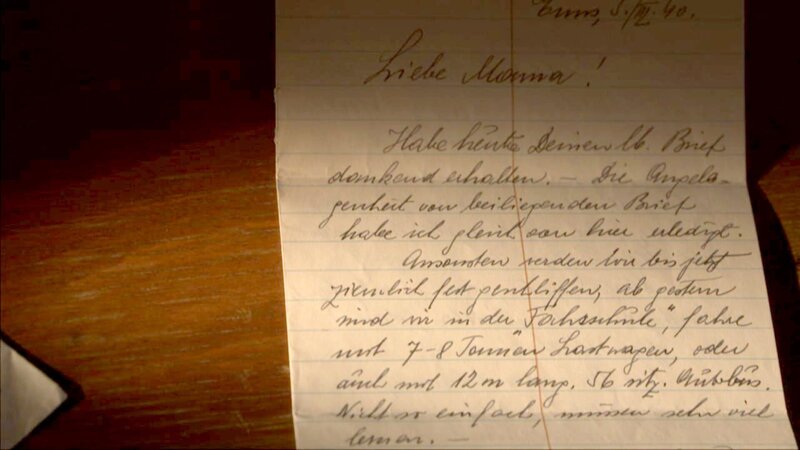 Enns, 5./III. 40.
Liebe Mama!
Habe heute Deinen lb. Brief
dankend erhalten. — Die Angele-
genheit von beiliegenden Brief
habe ich gleich von hier erledigt.
Ansonsten werden wir bis jetzt
ziemlich fest geschliffen, ab gestern
sind wir in der "Fahrschule", fahre
mit 7-8 Tonnen Lastwagen, oder
auch mit 12 m lang. 56 sitz. Autobus.
Nicht so einfach, müssen sehr viel
lernen. —